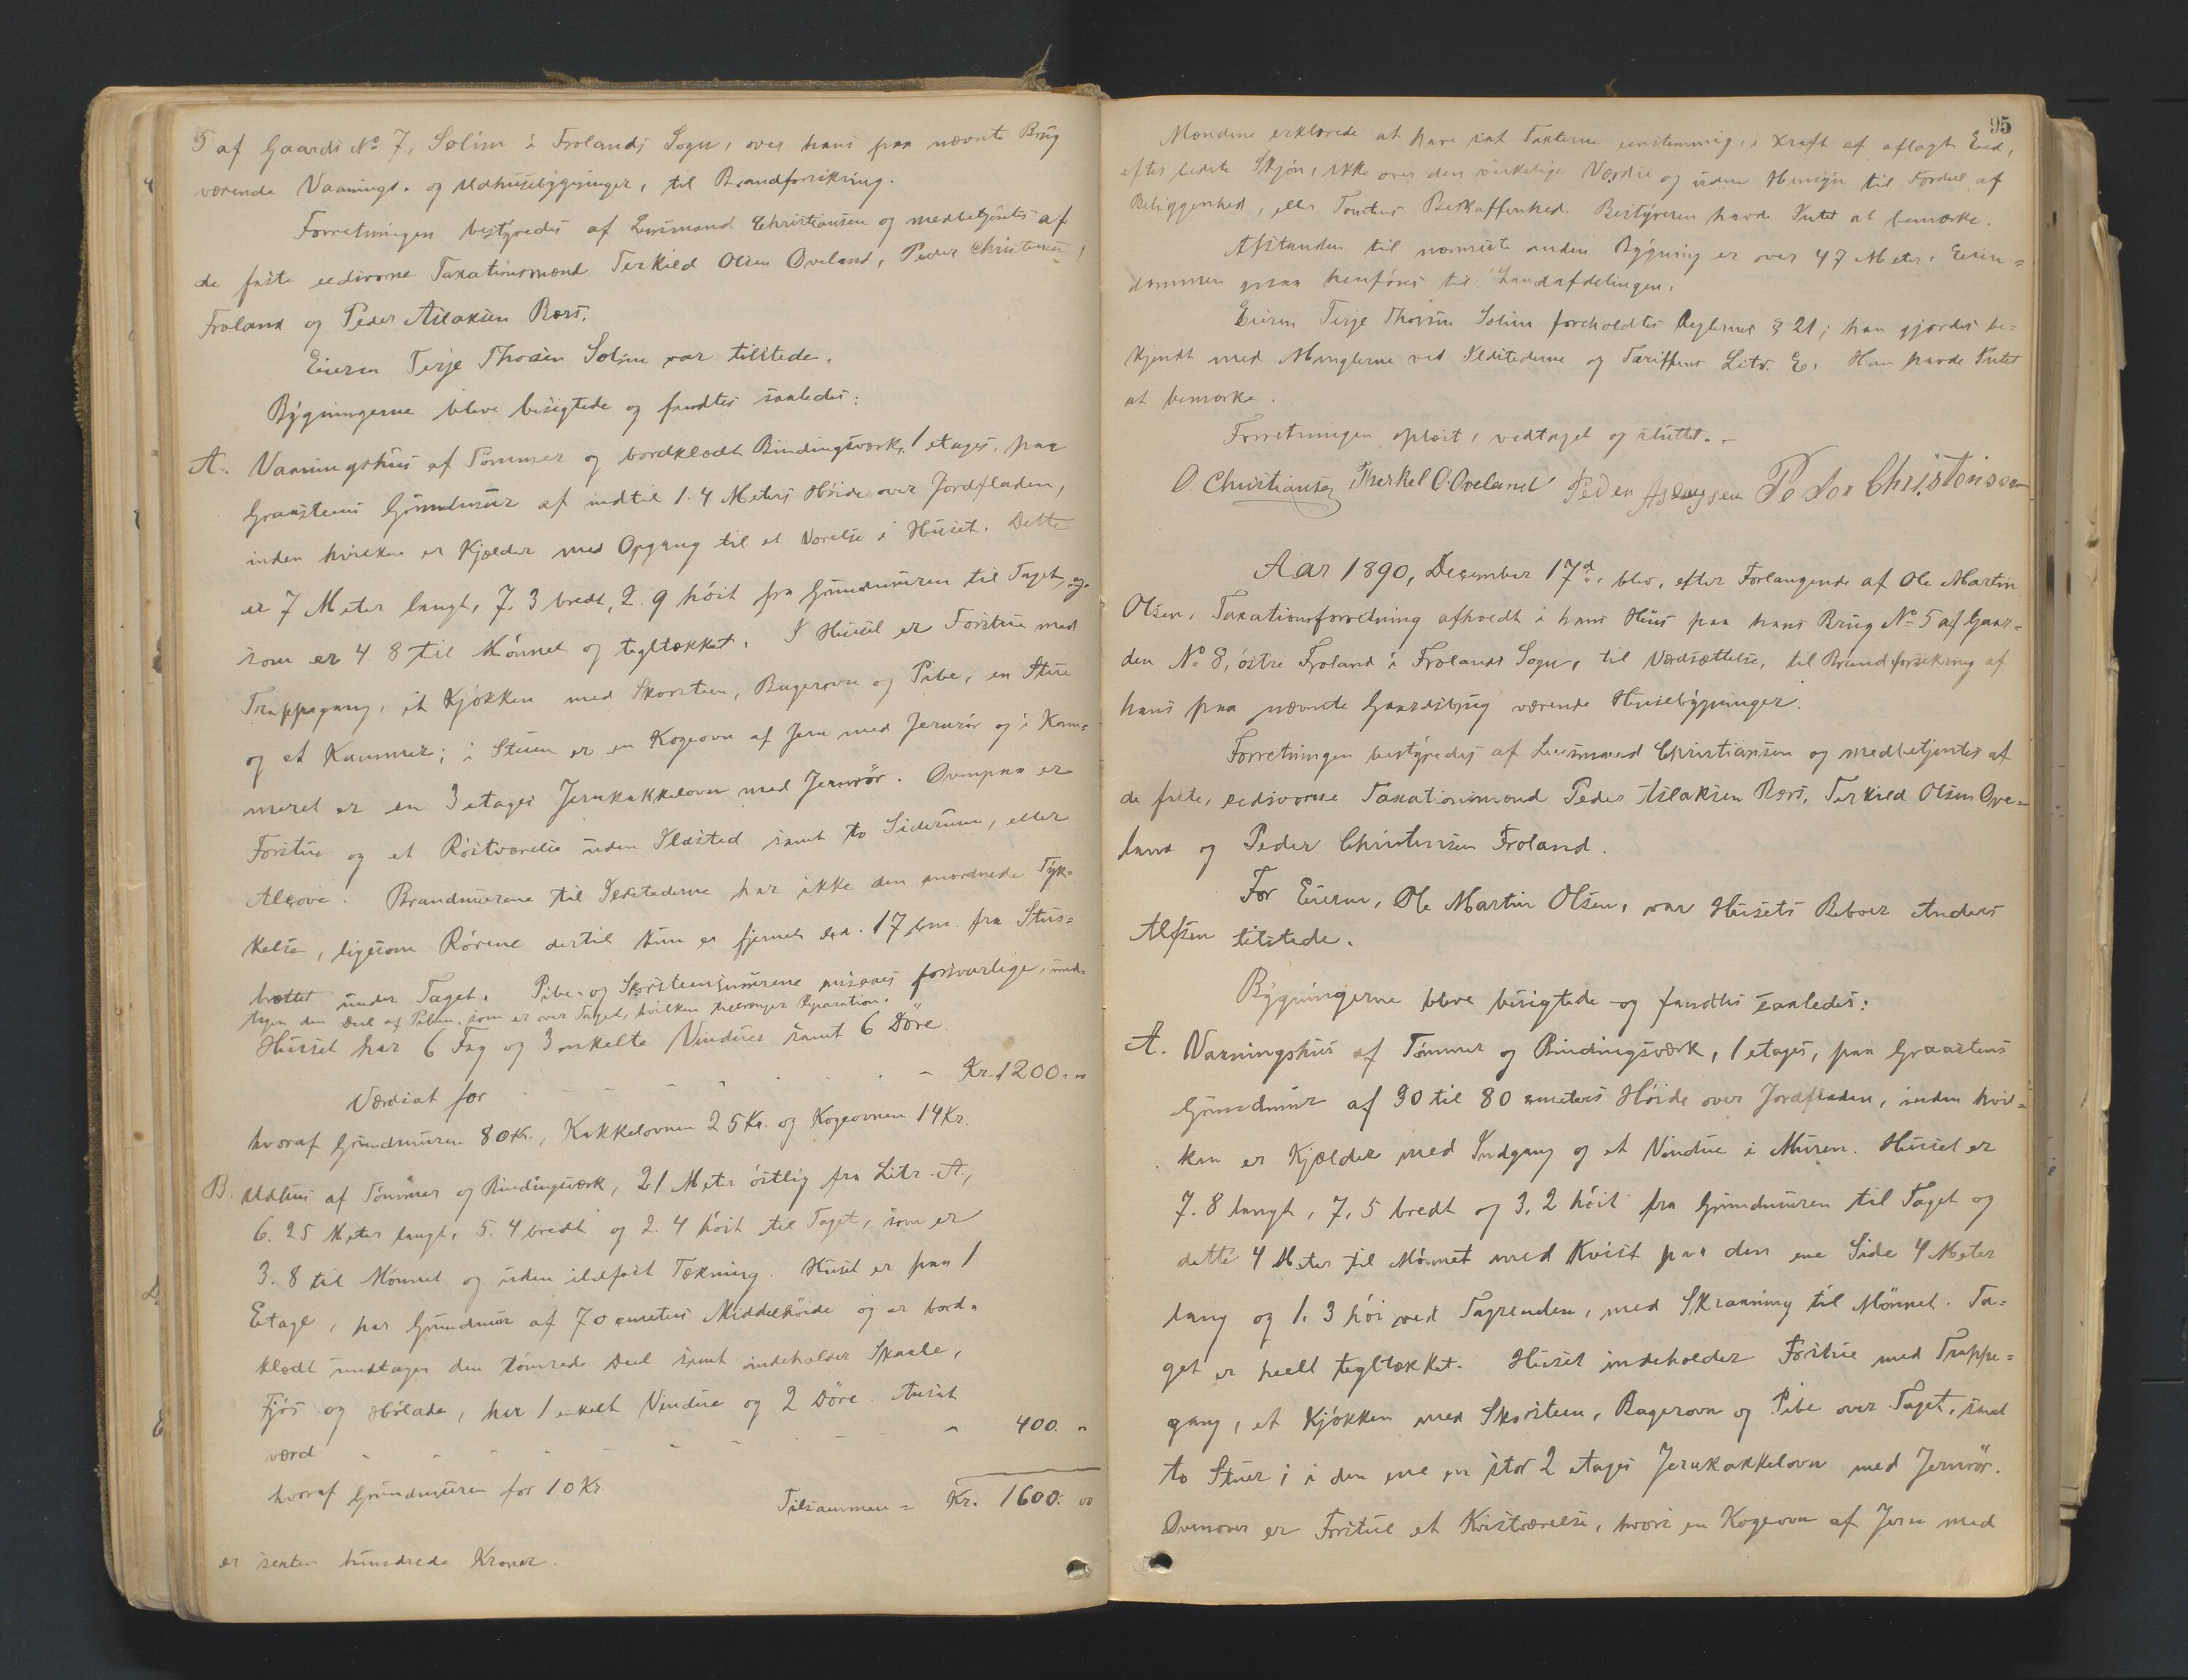 5 af Gaards No 7, Solim i Frolands Sogn, over hans paa nævnte Brug
værende Vaanings- og Udhusebygninger, til Brandforsikring.
Forretningen bestyredes af Lensmand Christiansen og medbetjentes af
de faste eedsvorne Taxationsmænd Terkild Olsen Oveland, Peder Christensen,
Froland og Peder Aslaksen Røes.
Eieren Terje Thorsen Solim var tilstede.
Bygningerne bleve besigtede og fandtes saaledes:
A. Vaaningshus af Tømmer og bordklædt Bindingsværk, 1 etages, paa
Graastens Grundmur af indtil 1.4 Meters Høide over Jordfladen,
inden hvilken er Kjælder med Opgang til et Værelse i Huset. Dette
er 7 Meter langt, 7.3 bredt, 2.9 høit fra Grundmuren til Taget, og
som er 4.8 til Mønnet og tegltækket. I Huset er Forstue med
Trappegang, et Kjøkken med Skorsten, Bagerovn og Pibe, en Stue
og et Kammer; i Stuen er en Kogeovn af Jern med Jernrør og i Kam=
meret er en 3 etages Jernkakkelovn med Jernrør. Ovenpaa er
Forstue og et Røstværelse uden Ildsted samt to Siderum, eller
Alcove. Brandmurene til Ildstederne har ikke den anordnede Tyk=
kelse, ligesom Rørene dertil kun er fjernede . 17 cm. fra Stus=
brættet under Taget. Pibe- og Skorstensmurene ansaaes forsvarlige, und-
tagen den Deel af Piben, som er over Taget, hvilken tiltrænger Reparation.
Huset har 6 Fag og 3 enkelte Vinduer samt 6 Døre.
Værdsat for - - - - - - Kr. 1200. "
hvoraf Grundmuren 80 Kr., Kakkelovnen 25 Kr. og Kogeovnen 14 Kr.
B. Udhus af Tømmer og Bindingsværk, 21 Meter østlig fra Litr. A.,
6.25 Meter langt, 5.4 bredt og 2.4 høit til Taget, som er
3.8 til Mønnet og uden ildfast Tækning. Huset er paa 1
Etage, har Grundmur af 70 cmeters Middelhøide og er bord=
klædt undtagen den tømrede Deel samt indeholder Skaale,
Fjøs og Hølade, har 1 enkelt Vindue og 2 Døre. Ansat
værd - - - - - - - 400. "
hvoraf Grundmuren for 10 Kr.
Tilsammen = Kr. 1600. 00
er sexten hundrede Kroner.
95
Mændene erklærede at have sat Taxterne eenstemmig, i Kraft af aflagt Eed,
efter bedste Skjøn, ikke over den virkelige Værdie og uden Hensyn til Fordeel af
Beliggenhed, eller Tomtens Beskaffenhed. Bestyreren havde Intet at bemærke.
Afstanden til nærmeste anden Bygning er over 47 Meter. Eien=
dommen maa henføres til Landafdelingen.
Eieren Terje Thorsen Solim foreholdtes Reglernes § 21; han gjordes be=
kjendt med Manglerne ved Ildstederne og Tariffens Litr. E. Han havde Intet
at bemærke.
Forretningen oplæst, vedtaget og sluttet. -
O. Christiansen Therkel O. Oveland Peder Aslagsen Peder Christensen
Aar 1890, December 17d., blev, efter Forlangende af Ole Martin
Olsen, Taxationsforretning afholdt i hans Hus paa hans Brug No 5 af Gaar=
den No 8, østre Froland i Frolands Sogn, til Værdsættelse, til Brandforsikring af
hans paa nævnte Gaardsbrug værende Husebygninger.
Forretningen bestyredes af Lensmand Christiansen og medbetjentes af
de faste, eedsvorne Taxationsmænd Peder Aslaksen Røes, Terkild Olsen Ove=
land og Peder Christensen Froland.
For Eieren, Ole Martin Olsen, var Husets Beboer Anders
Alfsen tilstede.
Bygningerne bleve besigtede og fandtes saaledes:
A. Vaaningshus af Tømmer og Bindingsværk, 1 etages, paa Graastens
Grundmur af 30 til 80 cmeters Høide over Jordfladen, inden hvil=
ken er Kjælder med Indgang og et Vindue i Muren. Huset er
7.8 langt, 7,5 bredt og 3,2 høit fra Grundmuren til Taget og
dette 4 Meter til Mønnet med Kvist paa den ene Side 4 Meter
lang og 1.3 høi ved Tagrenden, med Skraaning til Mønnet. Ta=
get er heelt tegltækket. Huset indeholder Forstue med Trappe=
gang, et Kjøkken med Skorsten, Bagerovn og Pibe over Taget, samt
to Stuer; i den ene en stor 2 etages Jernkakkelovn med Jernrør.
Ovenover er Forstue et Kvistværelse, hvori en Kogeovn af Jern med